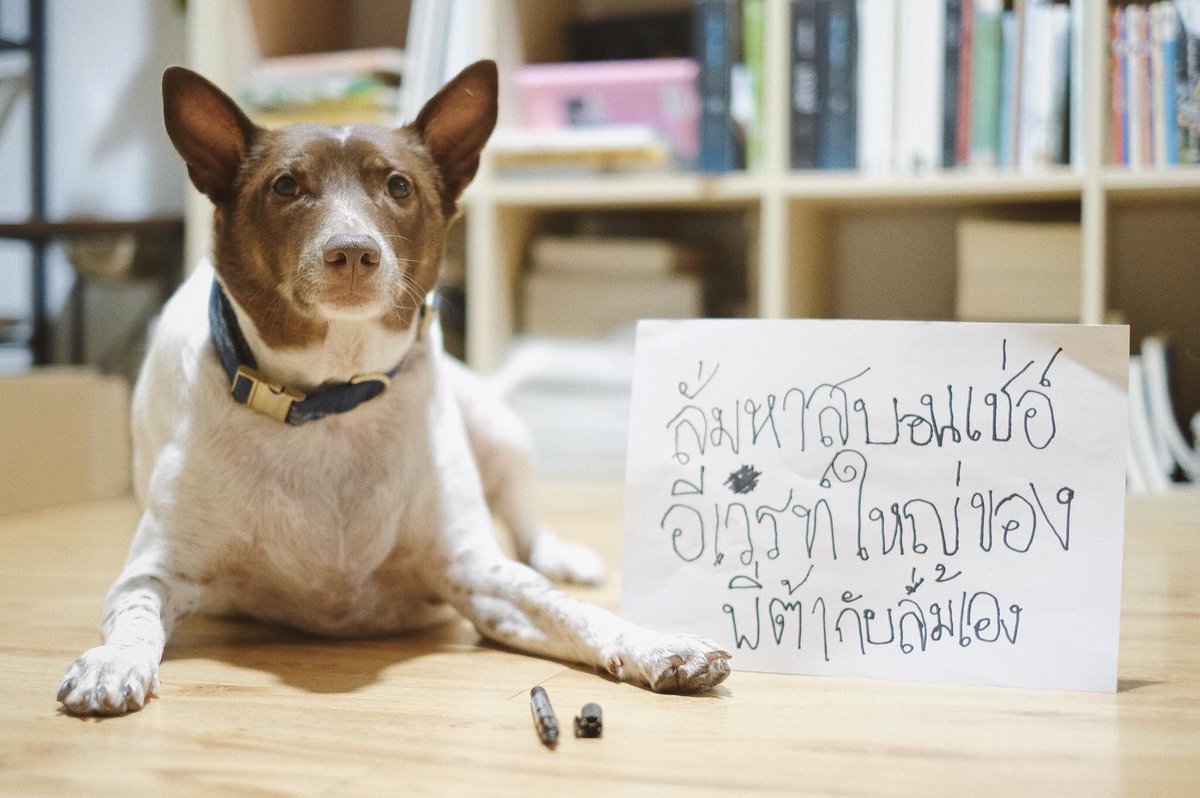 ส้มหาสบอนเช่อ์
อีเวรทใหญ่ของ
พี่ต้ากับส้มเอง